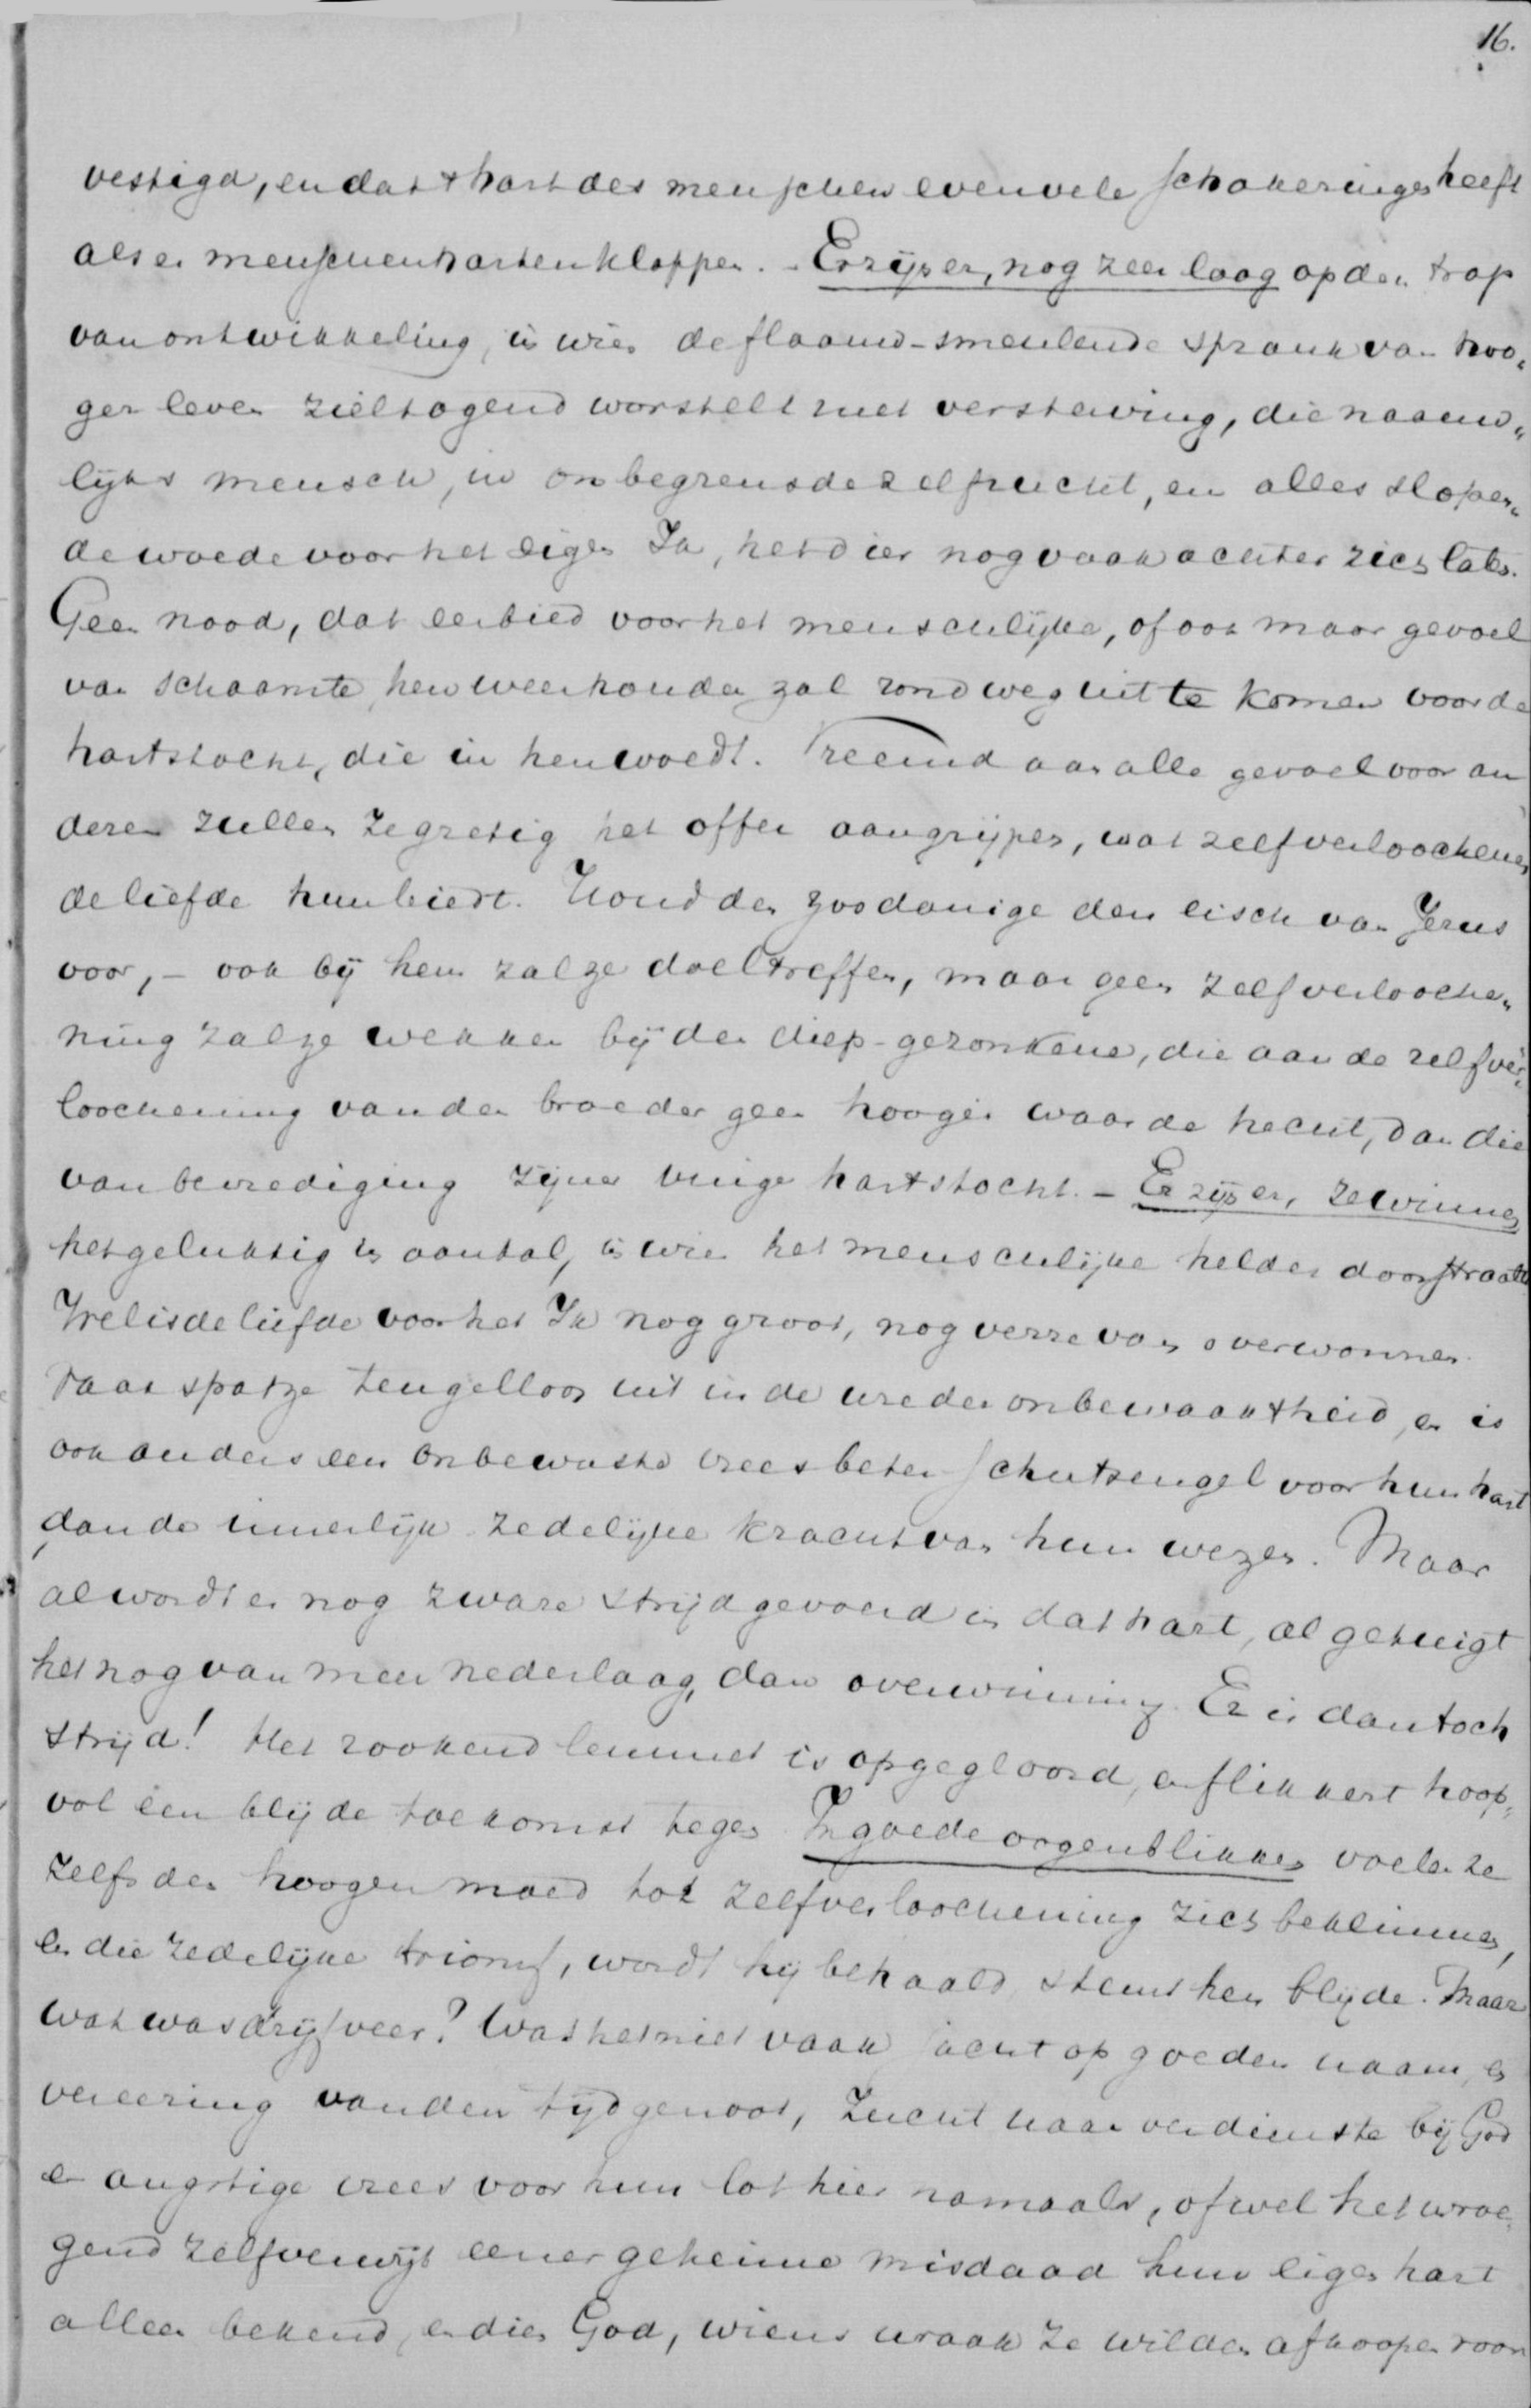 16.
vestigd, en dat 't hart des menschen evenvele schakeringen heeft
als er menschenharten kloppen. - Er zijn er, nog zeer laag op den trap
van ontwikkeling, in wien de flaauw-smeulende sprank van hoo„
ger leven zieltogend worstelt met verstening, die naauw„
lijks mensch, in onbegrensde zelfzucht, en alles slopen„
de woede voor het eigen Ik, het dier nog vaak achter zich laten.
Geen nood, dat eerbied voor het menschlijke, of ook maar gevoel
van schaamte, hen weerhouden zal rondweg uit te komen voor de
hartstocht, die in hen woedt. Vreemd aan alle gevoel voor an
deren zullen ze gretig het offer aangrijpen, wat zelfverloochenen
de liefde hun biedt. Houd den zoodanige den eisch van Jezus
voor, - ook bij hen zal ze doel treffen, maar geen zelfverlooche„
ning zal ze wekken bij den diep-gezonkene, die aan de zelfver„
loochening van den broeder geen hooger waarde hecht, dan die
van bevrediging zijner eenige hartstocht. - Er zijn er, ze winnen
het gelukkig in aantal, in wien het menschlijke helder doorstraalt
Wel is de liefde voor het Ik nog groot, nog verre van overwonnen.
Vaak spat ze teugelloos uit in de ure der onbewaaktheid, en is
ook anders een onbewuste vrees beter schutsengel voor hun hart
dan de innerlijk zedelijke kracht van hun wezen. Maar
al wordt er nog zware strijd gevoerd in dat hart, al getuigt
het nog van meer nederlaag, dan overwinning. Er is dan toch
strijd! Het rookend lemmet is opgegloord, en flikkert hoop„
vol een blijde toekomst tegen. In goede oogenblikken voelen ze
zelfs den hoogen moed tot zelfverloochening zich beklimmen,
en die zedelijke triomf, wordt hij behaald, stemt hen blijde. Maar
wat was drijfveer? Was het niet vaak jacht op goeden naam, en
vereering van den tijdgenoot, Zucht naar verdienste bij God
en angstige vrees voor hun lot hier namaals, of wel het wroe„
gend zelfverwijt eener geheime misdaad hun eigen hart
alleen bekend, en dien God, wiens wraak ze wilden afkoopen voor